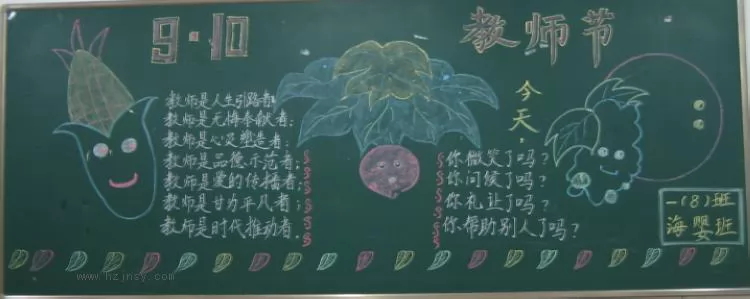 9·10
教师节
教师是人生引路者;
教师是无悔奉献者;
教师是心灵塑造者;
教师是品德示范者;
教师是爱的传播者;
教师是甘为平凡者;
教师是时代推动者.
今天:
你微笑了吗?
你问候了吗?
你礼让了吗?
你帮助别人了吗?
一(8)班
海婴班
www.hzjnsy.com